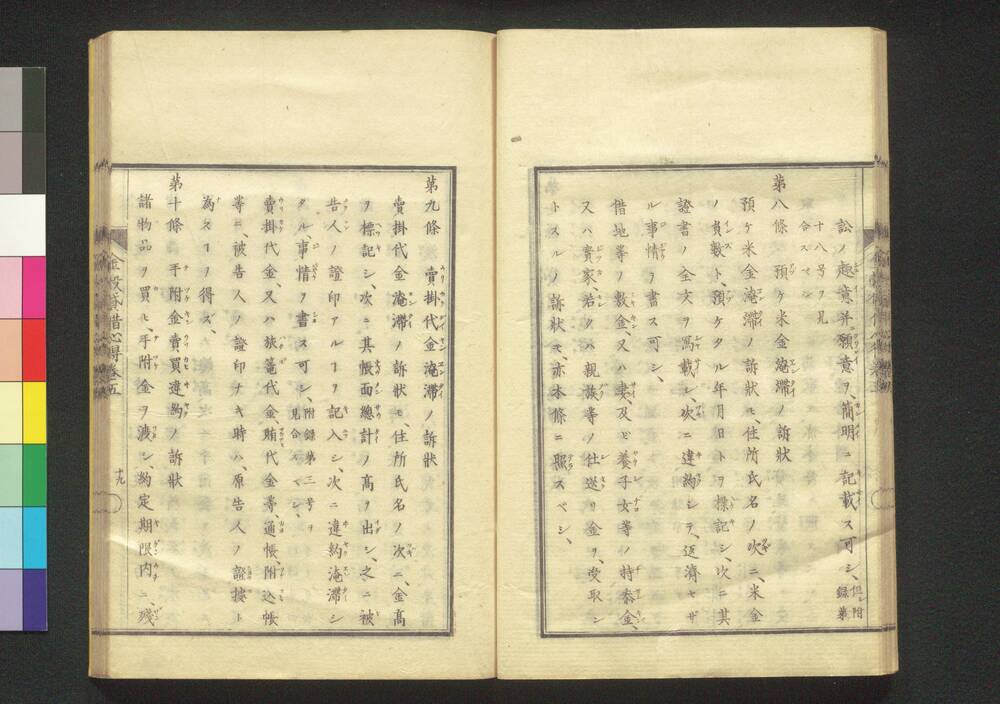 訟ノ趣意并願意ヲ、簡明ニ記載ス可シ、但シ附録第
十八号ヲ見合スベシ
第八條 預ケ米金淹滞ノ訴狀
預ケ米金淹滞ノ訴狀モ、住所氏名ノ次ニ、米金
ノ員數ト、預ケタル年月日トヲ標記シ、次ニ其
證書ノ全文ヲ寫載シ、次ニ違約シテ、返濟セザ
ル事情ヲ書ス可シ、
借地等ノ敷金、又ハ妻及ビ養子女等ノ持參金、
又ハ實家、若クハ親族等ノ仕送リ金ヲ、受取ン
トスルノ訴狀モ、亦本條ニ照スベシ、
第九條 賣掛代金淹滞ノ訴狀
賣掛代金淹滞ノ訴狀モ、住所氏名ノ次ニ、金高
ヲ標記シ、次ニ其帳面總計ノ高ヲ出シ、之ニ被
告人ノ證印アルヿヲ記入シ、次ニ違約淹滞シ
タル、事情ヲ書ス可シ、附録第二号ヲ見合スベシ、
賣掛代金、又ハ旅篭代金、賄代金等、通帳、附込帳
等ニ、被告人ノ證印ナキ時ハ、原告人ノ證據ト
為スヿヲ得ズ、
第十條 手附金賣買違約ノ訴狀
諸物品ヲ買ヒ、手附金ヲ渡シ、約定期限内ニ殘
金穀貸借心得巻五
十九